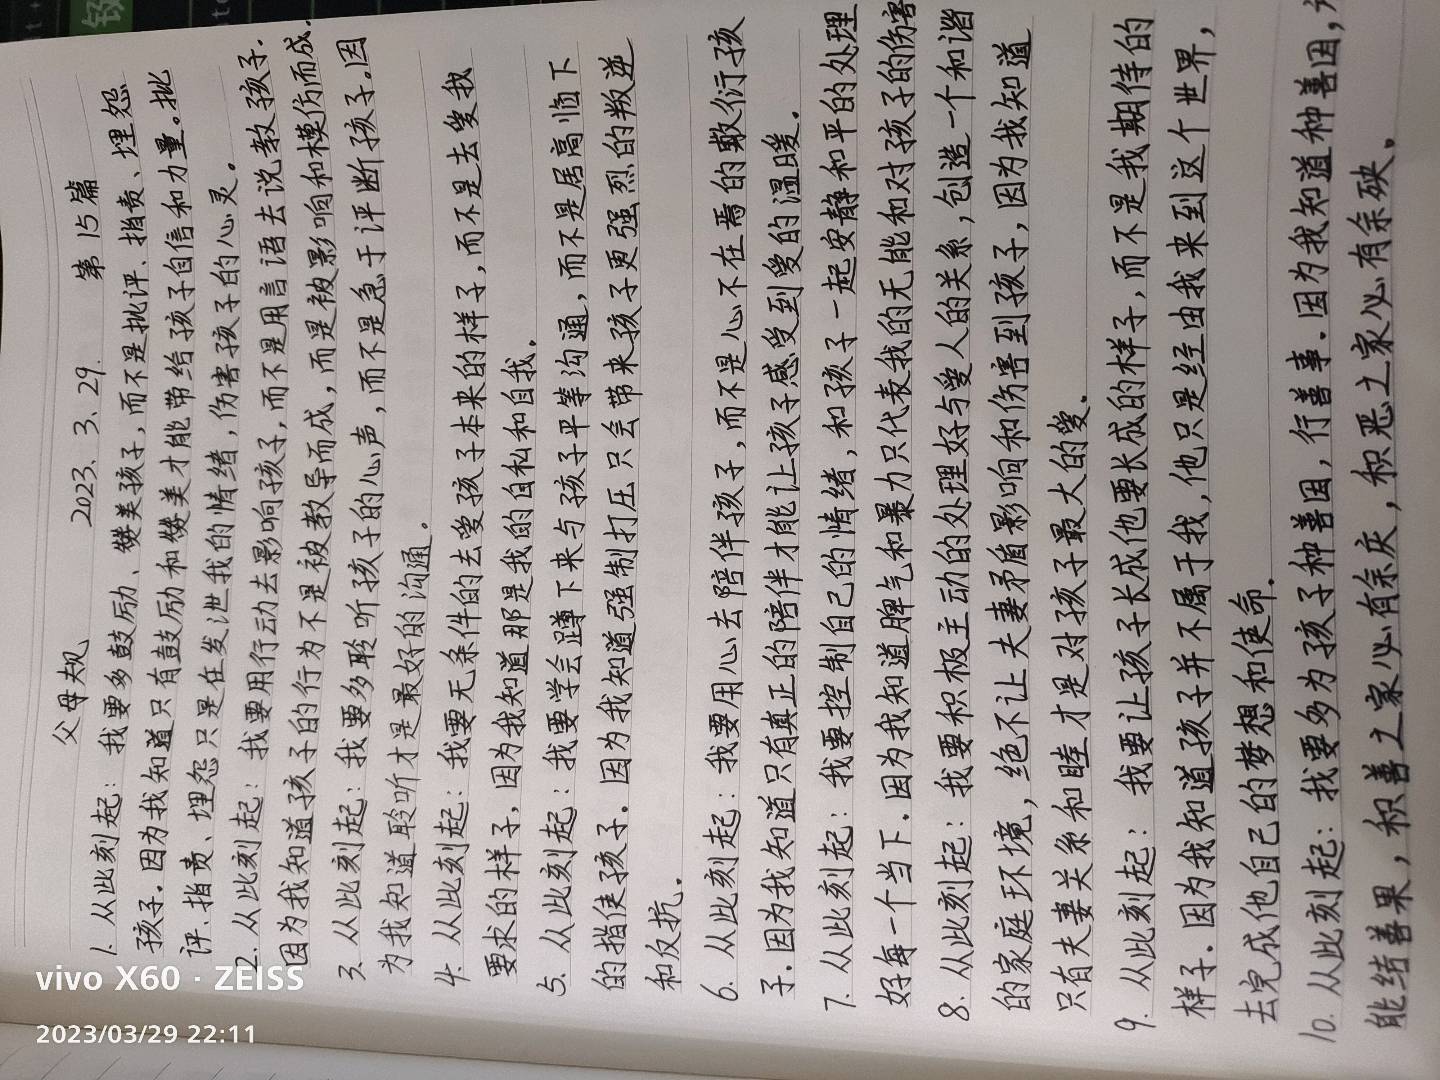 父母规 2023.3.29. 第15篇
1. 从此刻起：我要多鼓励、赞美孩子，而不是批评、指责、埋怨
孩子．因为我知道只有鼓励和赞美才能带给孩子自信和力量。批
评、指责、埋怨只是在发泄我的情绪，伤害孩子的心灵。
2. 从此刻起：我要用行动去影响孩子，而不是用言语去说教孩子．
因为我知道孩子的行为不是被教导而成，而是被影响和模仿而成．
3. 从此刻起：我要多聆听孩子的心声，而不是急于评断孩子。因
为我知道聆听才是最好的沟通。
4. 从此刻起：我要无条件的去爱孩子本来的样子，而不是去爱我
要求的样子，因为我知道那是我的自私和自我。
5. 从此刻起：我要学会蹲下来与孩子平等沟通，而不是居高临下
的指使孩子．因为我知道强制打压只会带来孩子更强烈的叛逆
和反抗。
6. 从此刻起：我要用心去陪伴孩子，而不是心不在焉的敷衍孩
子．因为我知道只有真正的陪伴才能让孩子感受到爱的温暖。
7. 从此刻起：我要控制自己的情绪，和孩子一起安静和平的处理
好每一个当下．因为我知道脾气和暴力只代表我的无能和对孩子的伤害
8. 从此刻起：我要积极主动的处理好与爱人的关系，创造一个和谐
的家庭环境，绝不让夫妻矛盾影响和伤害到孩子，因为我知道
只有夫妻关系和睦才是对孩子最大的爱。
9. 从此刻起：我要让孩子长成他要长成的样子，而不是我期待的
样子．因为我知道孩子并不属于我，他只是经由我来到这个世界，
去完成他自己的梦想和使命．
10. 从此刻起：我要多为孩子种善因，行善事．因为我知道种善因，
能结善果，积善之家必有余庆，积恶之家必有余殃。
vivo X60 · ZEISS
2023/03/29 22:11